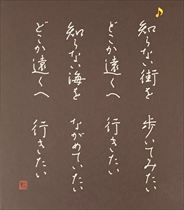 知らない街を 歩いてみたい
どこか遠くへ 行きたい
知らない海を ながめていたい
どこか遠くへ 行きたい